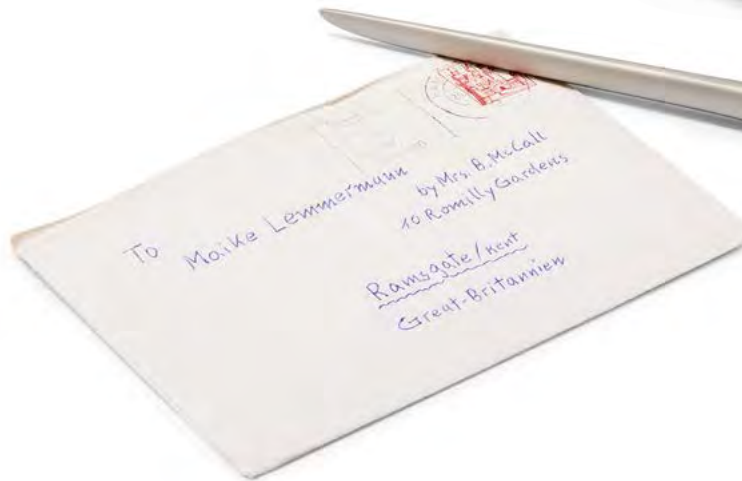 To Maike Lemmermann
by Mrs. B. McCall
10 Romilly Gardens
Ramsgate/Kent
Great-Britannien